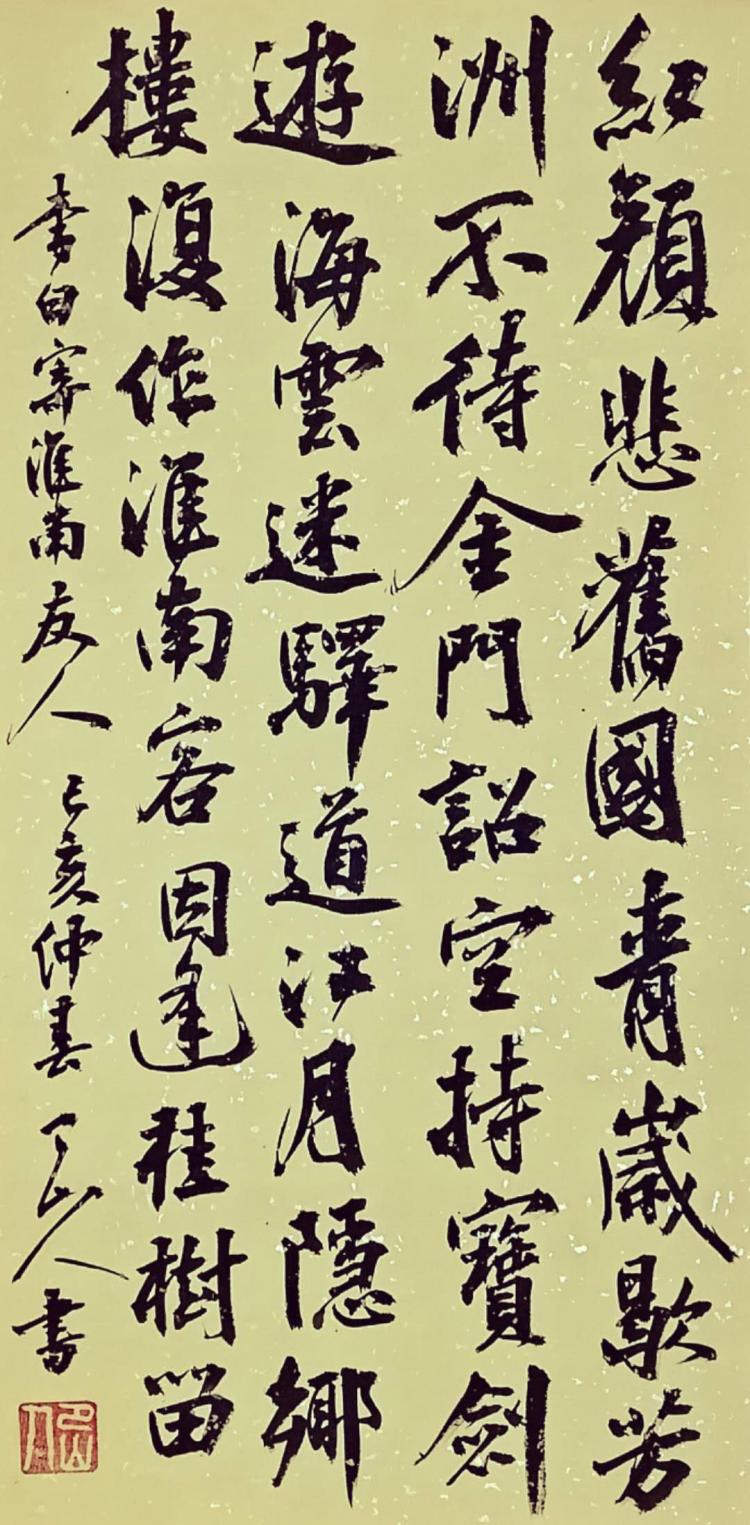 紅顔悲舊國青歲歇芳
洲不待金門詔空持寶劍
遊海雲迷驛道江月隱鄉
樓復作淮南客因逢桂樹留
李白寄淮南友人 己亥仲春 了山人書